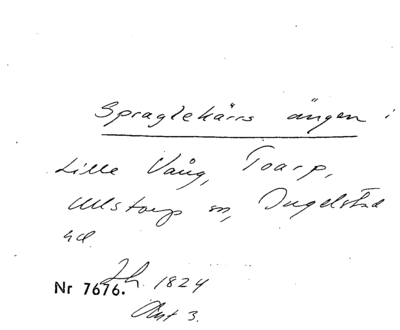 Spraglekärrs ängen i
Lille Vång, Toarp,
Ullstorp sn, Ingelstad
hd.
Jh. 1824
Nr 7676.
Akt 3.